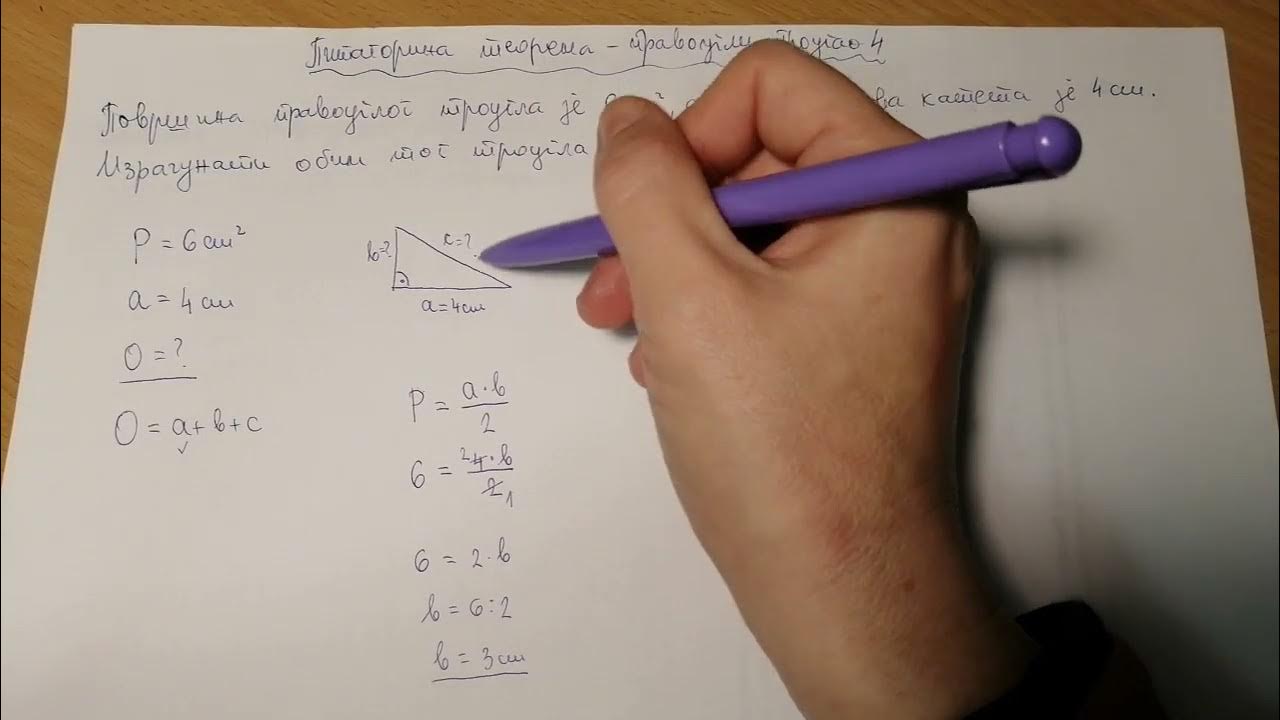 Питагорина теорема – правоугли троугао 4
Површина правоуглог троугла је катета је 4 cm.
Израчунати обим тог троугла
P = 6 cm²
a = 4 cm
O = ?
O = a + b + c
b=?
c=?
a = 4 cm
P = a · b / 2
6 = 4 · b / 2
2
1
6 = 2 · b
b = 6 : 2
b = 3 cm